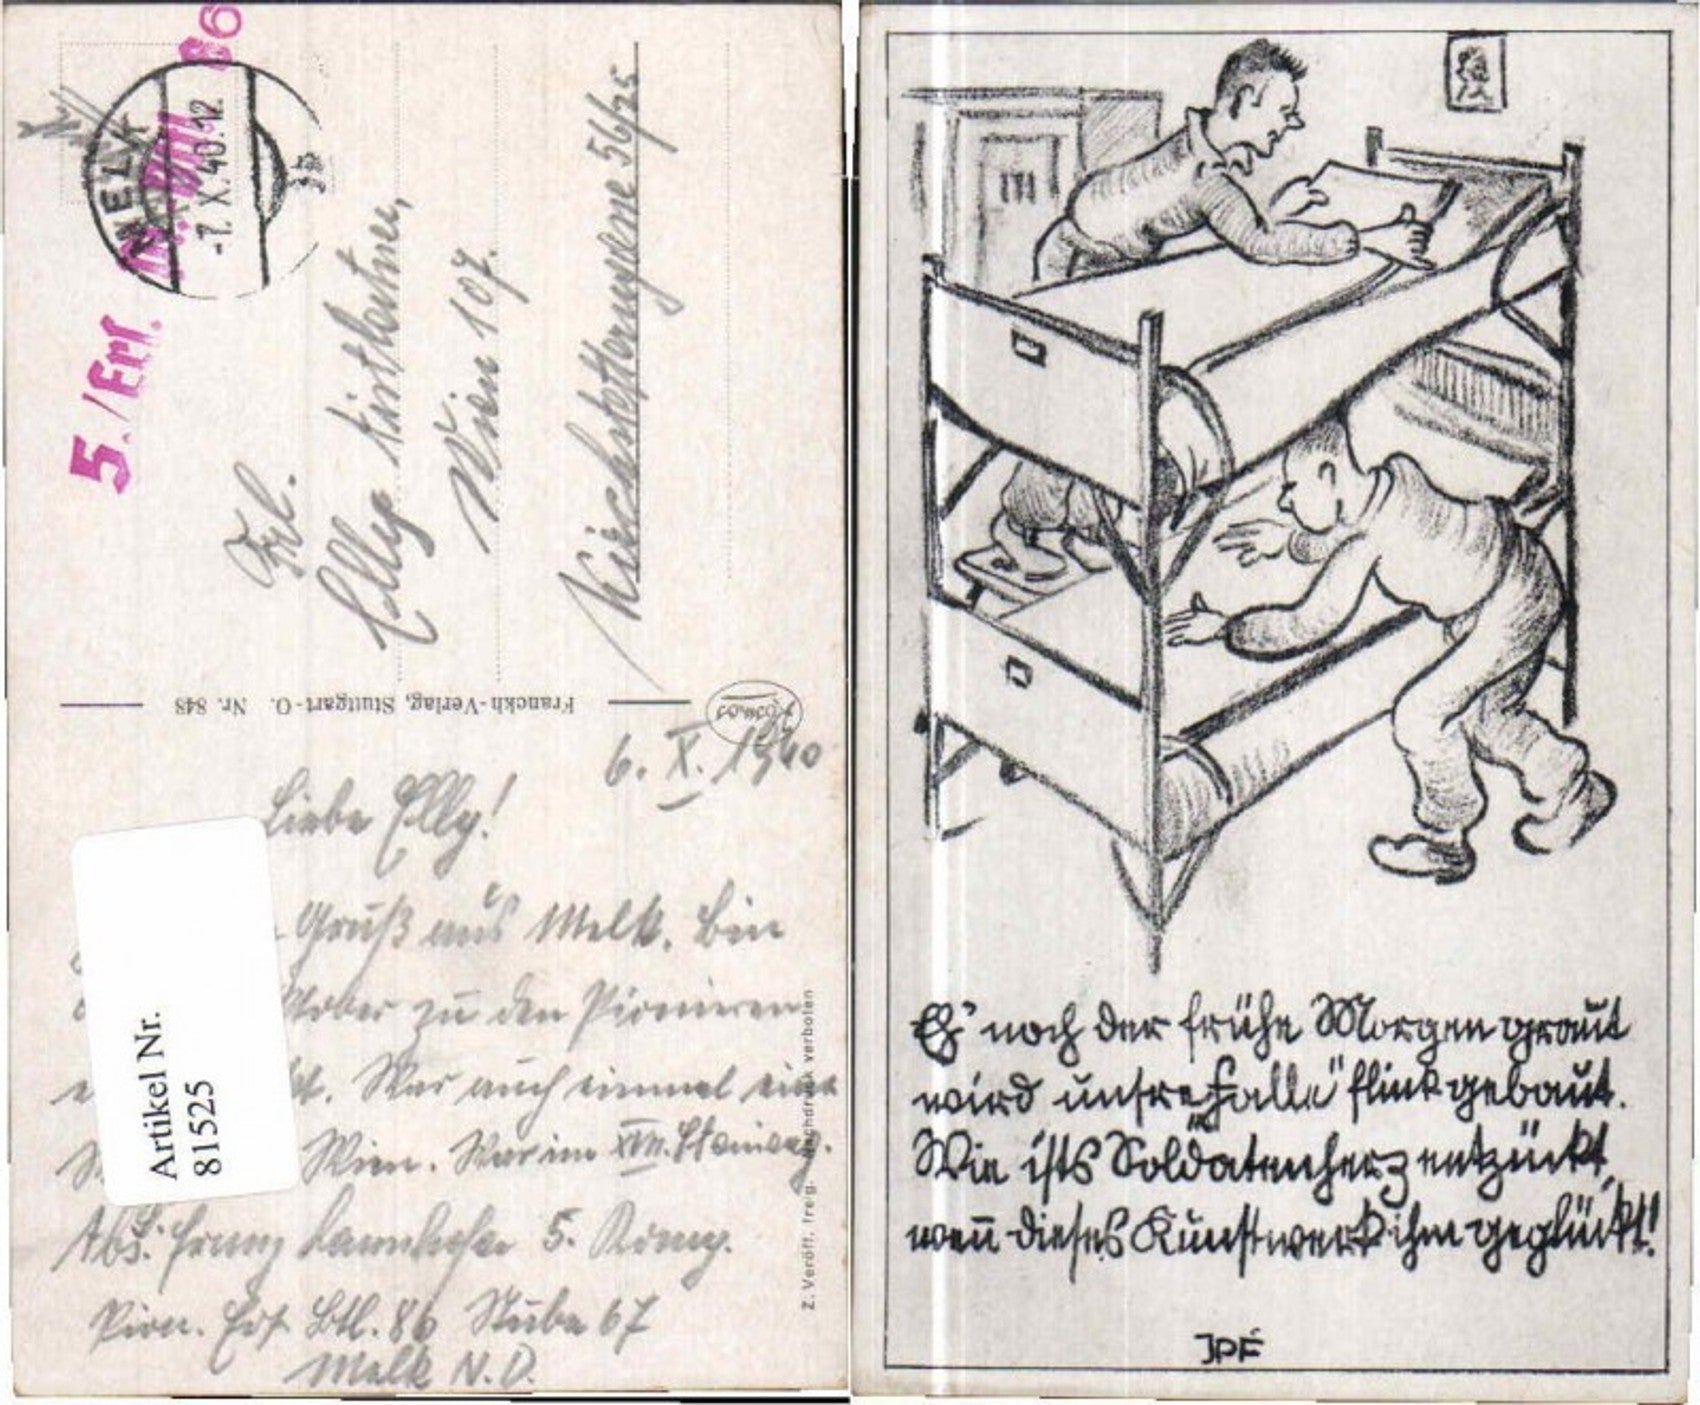 MELK
-7.X.40.12
5./Erf.
86
Frl.
Elly
Wien 107.
56/25
Franckh-Verlag, Stuttgart-O. Nr. 848
6. X. 1940
Liebe Elly!
Gruß aus Melk. Bin
zu den Pionieren
War auch einmal eine
Wien. War im XVII.
Abs. Franz 5. Komp.
Pion. Ers. Btl. 86 Stube 67
Melk N.D.
Z. Veröff. freig. Nachdruck verboten
Artikel Nr.
81525
Eh' noch der frühe Morgen graut
wird unsre „Falle" flink gebaut.
Wie ists Soldatenherz entzückt,
wenn dieses Kunstwerk ihm geglückt!
JPF